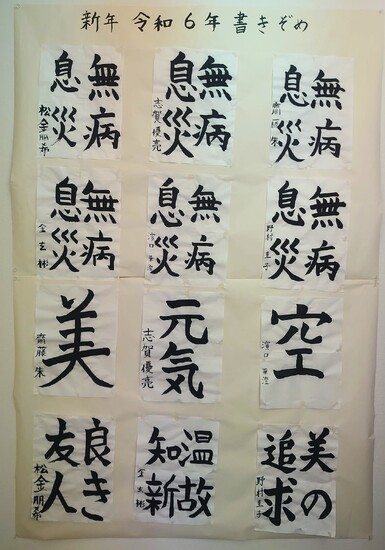 新年 令和6年 書きぞめ
無病
息災
松金朋希
無病
息災
志賀優亮
無病
息災
齋藤 朱
無病
息災
金玄彬
無病
息災
濱口
無病
息災
野村圭子
美
齋藤 朱
元気
志賀優亮
空
濱口
良き
友人
松金朋希
温故
知新
金玄彬
美の
追求
野村圭子